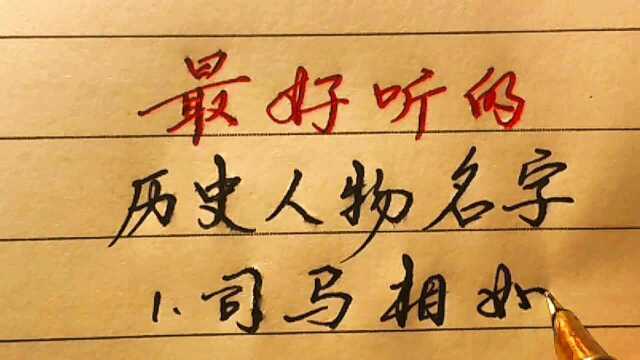 最好听的
历史人物名字
1.司马相如